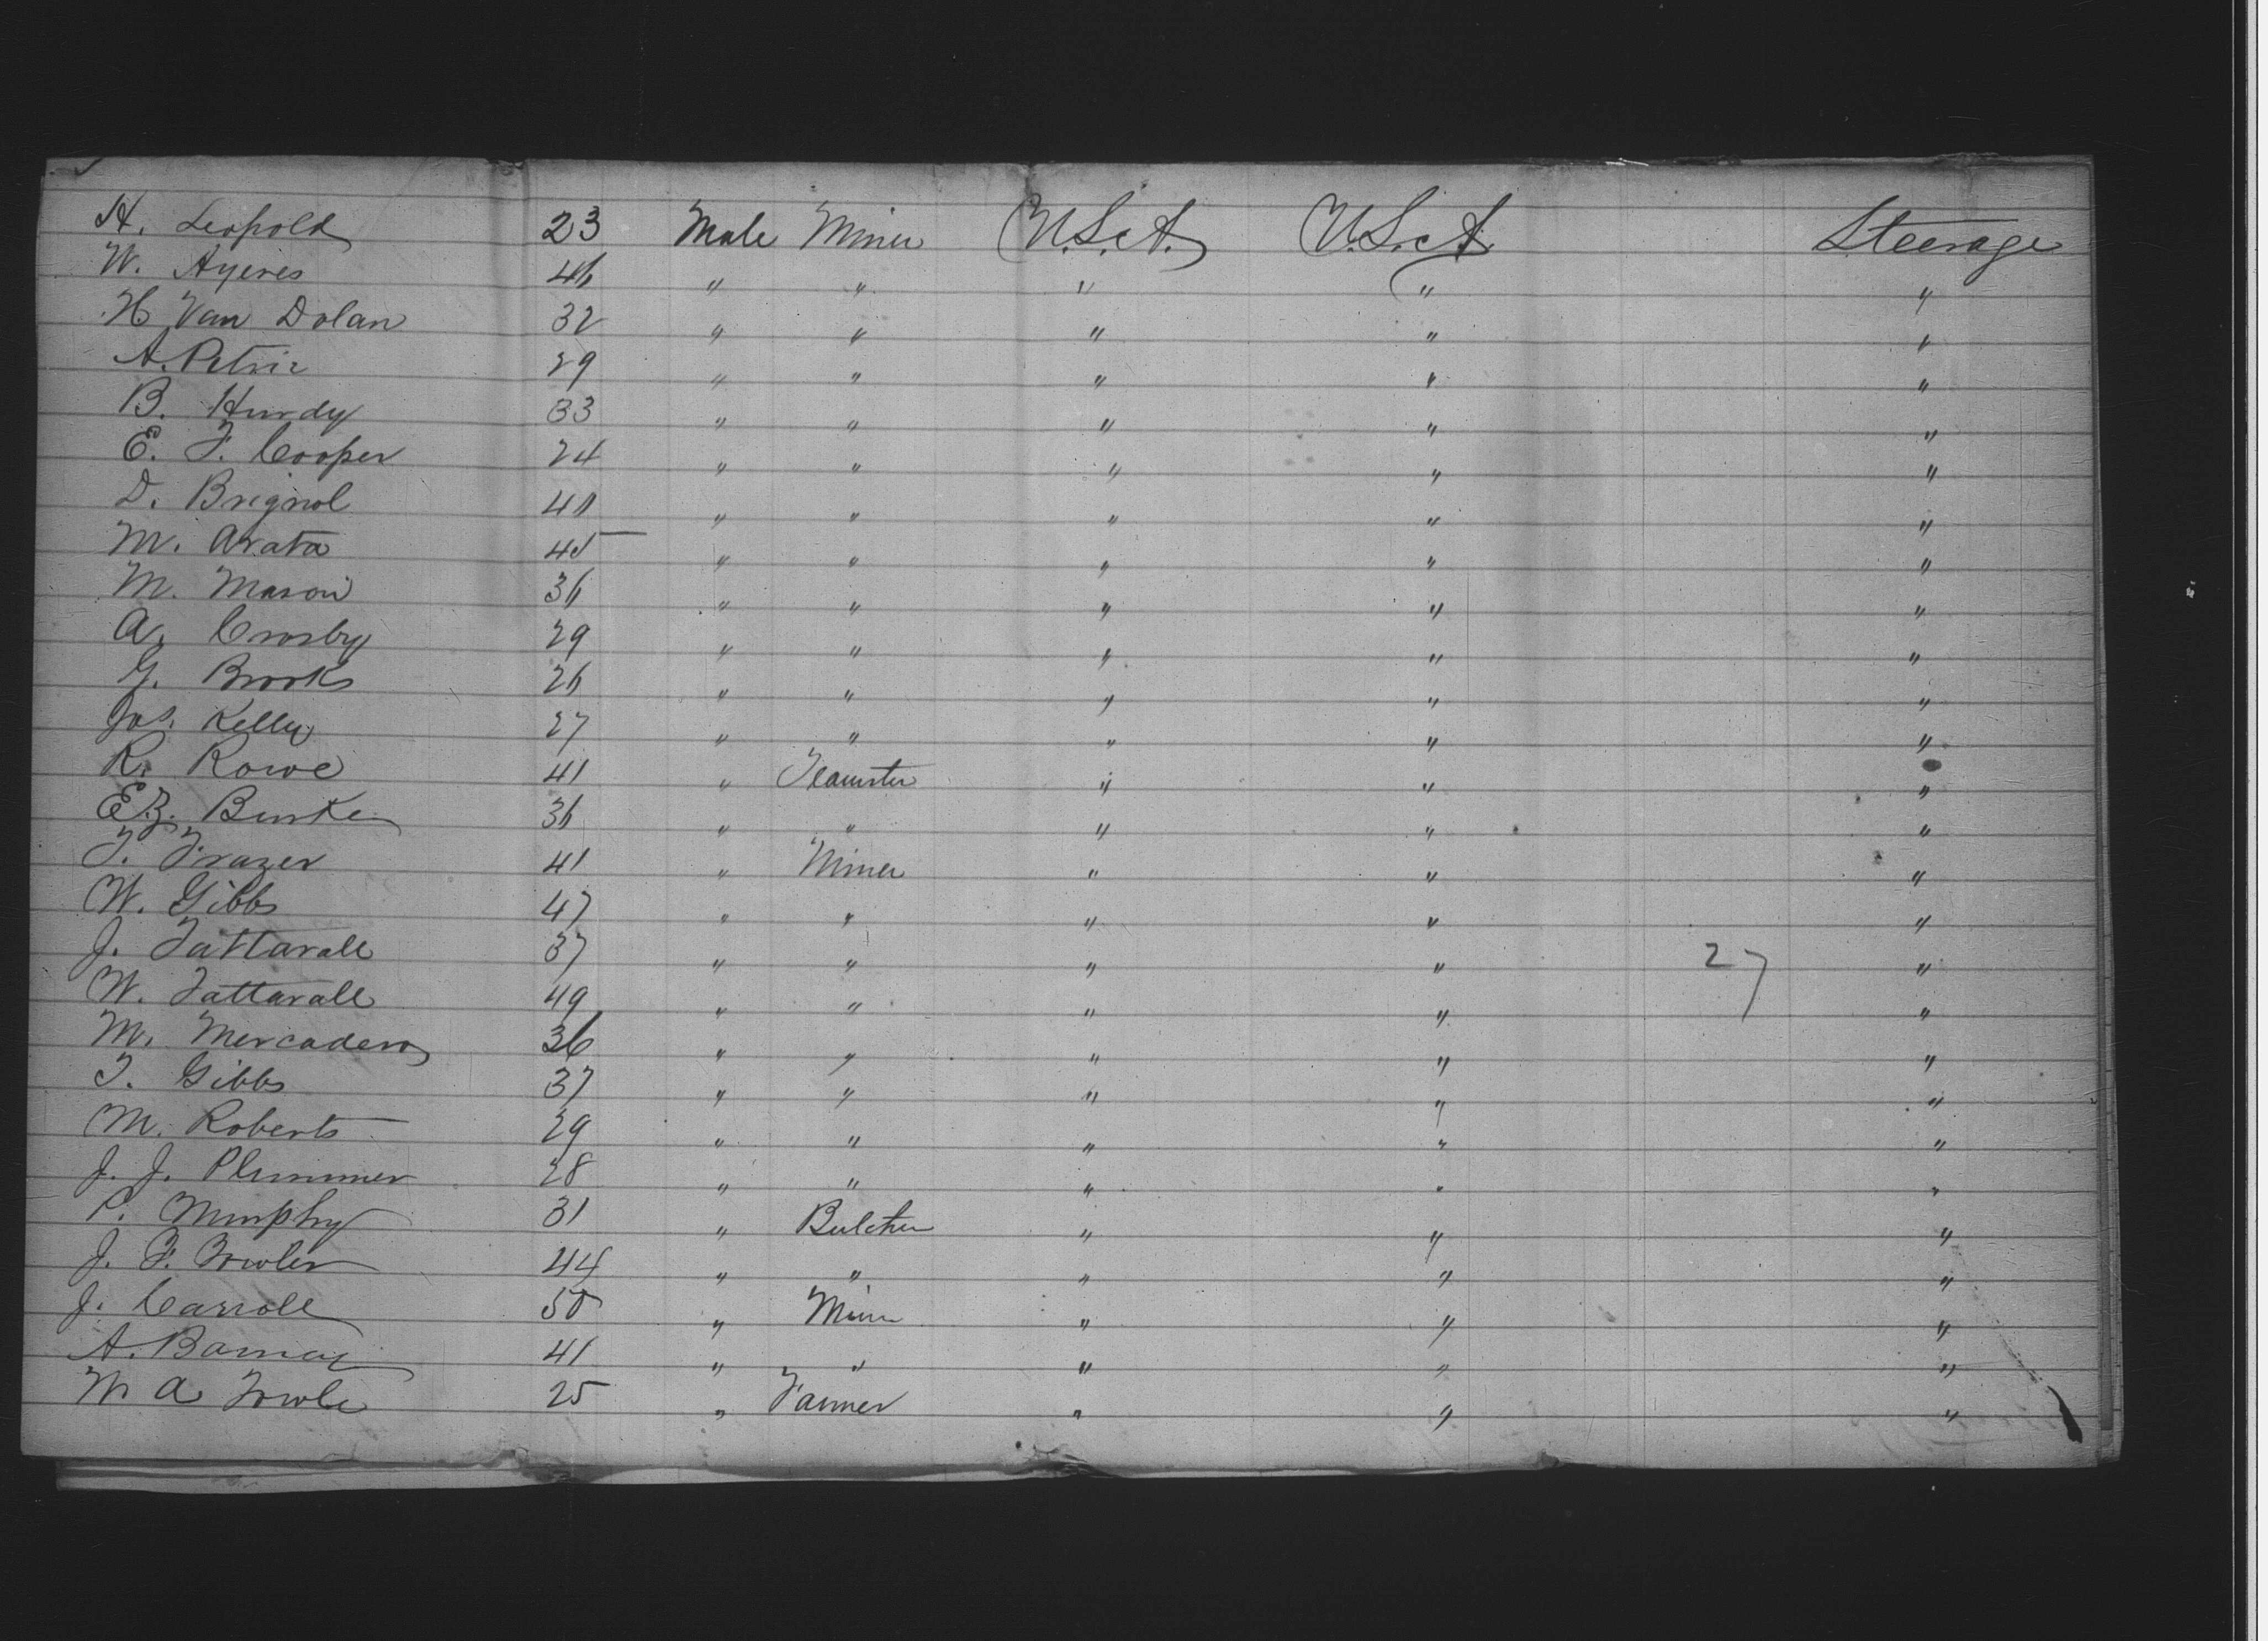 H. Leopold 23 Male Miner U.S.A. U.S.A. Steerage
W. Ayeres 46 " " " " "
H Van Dolan 32 " " " " "
A. Petrie 29 " " " " "
B. Hurdy 33 " " " " "
E. F. Cooper 24 " " " " "
D. Brignol 40 " " " " "
M. Arata 45 " " " " "
M. Mason 36 " " " " "
A. Crosby 29 " " " " "
G. Brooks 26 " " " " "
Jas. Kelly 27 " " " " "
R. Rowe 41 " Teamster " " "
E.B. Burke 36 " " " " "
T. Frazer 41 " Miner " " "
W. Gibbs 47 " " " " "
J. Tattarall 37 " " " " 27 "
W. Tattarall 49 " " " " "
M. Mercadero 36 " " " " "
T. Gibbs 37 " " " " "
M. Roberts 29 " " " " "
J. J. Plummer 28 " " " " "
P. Murphy 31 " Butcher " " "
J. F. Fowler 44 " " " " "
J. Carroll 50 " Miner " " "
A. 41 " " " " "
M A 25 " Farmer " " "